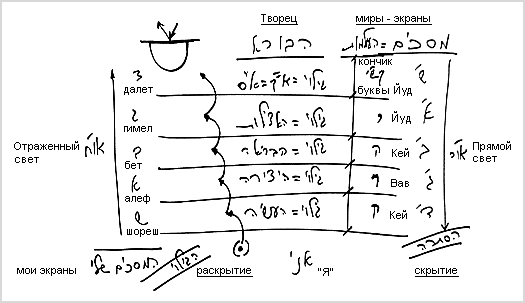 Творец миры - экраны
הבורא מסכים = העלמות
кончик
ג גילוי = א"ק = א"ס קוצו של י' ש'
далет буквы Йуд
ב גילוי = האצילות י Йуд א'
гимел
Отраженный свет או"ח
ב גילוי = הבריאה ה Кей ב'
Прямой свет או"י
бет
א גילוי = היצירה ו Вав ג'
алеф
ש גילוי = העשיה ה Кей ד'
шореш
הסתרה
мои экраны המסכים שלי הגילוי раскрытие אני "Я" скрытие